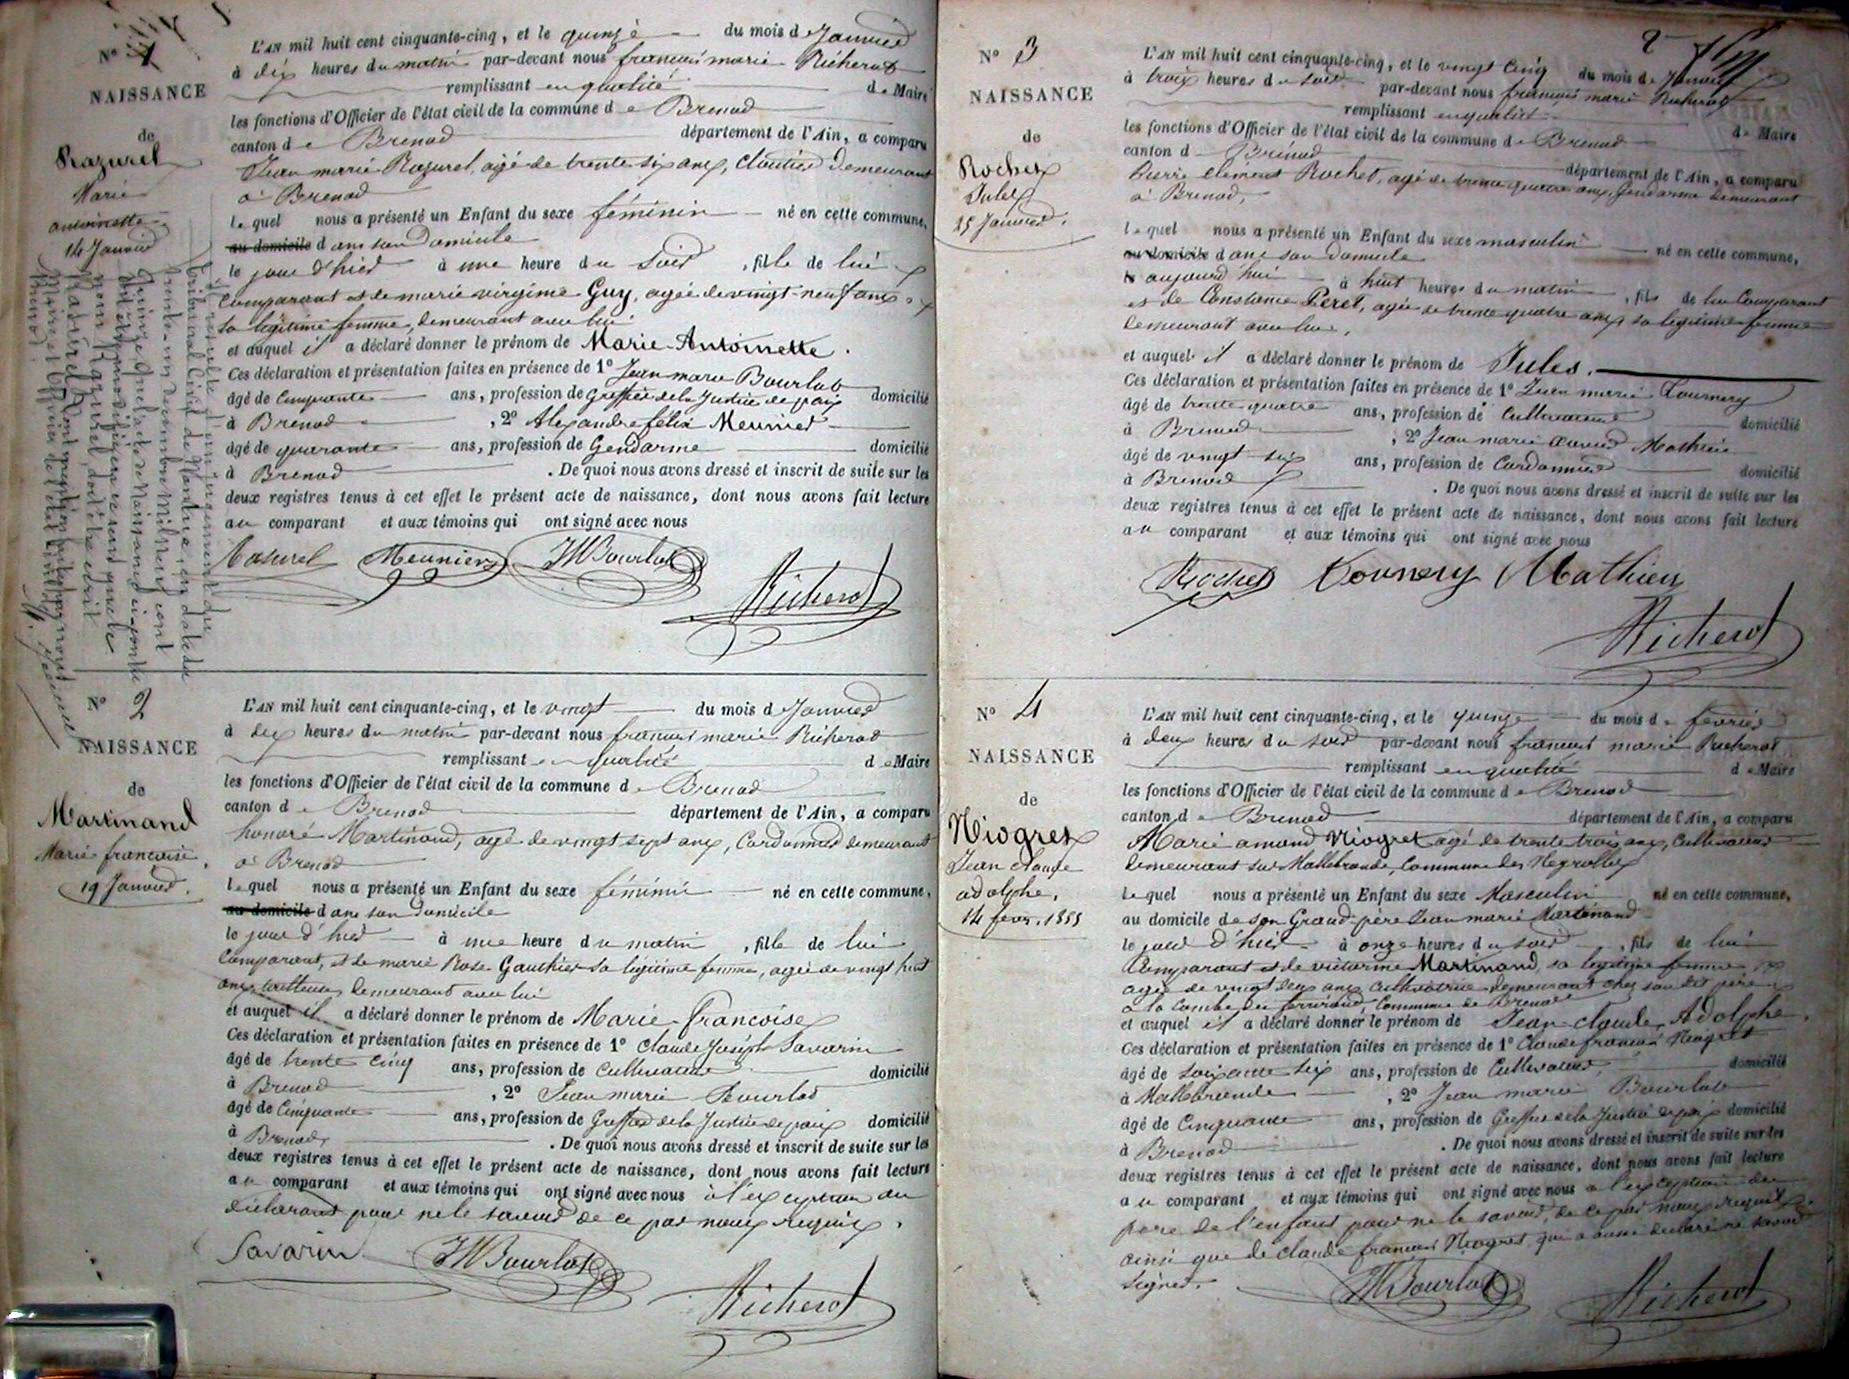 N° 1
NAISSANCE
de
Razurel
Marie
antoinette
14 Janvier
L'AN mil huit cent cinquante-cinq, et le quinze du mois de Janvier
à dix heures du matin par-devant nous francois marie Richerot
remplissant en qualité de Maire
les fonctions d'Officier de l'état civil de la commune de Brenod
canton de Brenod département de l'Ain, a comparu
Jean marie Razurel, agé de trente six ans, cloutier demeurant
à Brenod
lequel nous a présenté un Enfant du sexe féminin né en cette commune,
au domicile dans son Domicile
le jour d'hier à une heure du soir, fille de lui
comparant et de marie virginie Guy, agée de vingt-neuf ans,
sa légitime femme, demeurant avec lui
et auquel il a déclaré donner le prénom de Marie-Antoinette.
Ces déclaration et présentation faites en présence de 1° Jean marie Bourlot
âgé de Cinquante ans, profession de Greffier de la Justice de paix domicilié
à Brenod, 2° Alexandre félix Meunier
âgé de quarante ans, profession de Gendarme domicilié
à Brenod. De quoi nous avons dressé et inscrit de suite sur les
deux registres tenus à cet effet le présent acte de naissance, dont nous avons fait lecture
au comparant et aux témoins qui ont signé avec nous
Rasurel Meunier JMBourlot
Richerot
N° 2
NAISSANCE
de
Martinand
Marie francoise,
19 Janvier.
L'AN mil huit cent cinquante-cinq, et le vingt du mois de Janvier
à dix heures du matin par-devant nous francois marie Richerot
remplissant en qualité de Maire
les fonctions d'Officier de l'état civil de la commune de Brenod
canton de Brenod département de l'Ain, a comparu
honoré Martinand, agé de vingt sept ans, Cordonnier demeurant
à Brenod
lequel nous a présenté un Enfant du sexe féminin né en cette commune,
au domicile dans son Domicile
le jour d'hier à une heure du matin, fille de lui
Comparant, et de marie Rose Gauthier sa légitime femme, agée de vingt huit
ans, demeurant avec lui
et auquel il a déclaré donner le prénom de Marie-francoise
Ces déclaration et présentation faites en présence de 1° Claude Joseph Savarin
âgé de trente cinq ans, profession de Cultivateur domicilié
à Brenod, 2° Jean marie Bourlot
âgé de Cinquante ans, profession de Greffier de la Justice de paix domicilié
à Brenod, . De quoi nous avons dressé et inscrit de suite sur les
deux registres tenus à cet effet le présent acte de naissance, dont nous avons fait lecture
au comparant et aux témoins qui ont signé avec nous à l'exception du
déclarant pour ne le savoir de ce par nous requis.
Savarin JMBourlot
Richerot
2
N° 3
NAISSANCE
de
Rochet
Jules
25 Janvier.
L'AN mil huit cent cinquante-cinq, et le vingt cinq du mois de Janvier
à trois heures du soir par-devant nous francois marie Richerot
remplissant en qualité de Maire
les fonctions d'Officier de l'état civil de la commune de Brenod
canton d Brénod département de l'Ain, a comparu
Pierre clément Rochet, agé de trente quatre ans, Gendarme demeurant
à Brenod,
lequel nous a présenté un Enfant du sexe masculin né en cette commune,
au domicile dans son Domicile
le aujourd'hui à huit heures du matin, fils de lui Comparant
et de Constance Peret, agée de trente quatre ans, sa légitime femme
demeurant avec lui,
et auquel il a déclaré donner le prénom de Jules.
Ces déclaration et présentation faites en présence de 1° Jean marie Tournery
âgé de trente quatre ans, profession de Cultivateur domicilié
à Brenod, 2° Jean marie Mathieu
âgé de vingt-six ans, profession de Cordonnier domicilié
à Brenod. De quoi nous avons dressé et inscrit de suite sur les
deux registres tenus à cet effet le présent acte de naissance, dont nous avons fait lecture
au comparant et aux témoins qui ont signé avec nous
Rochet Tournery Mathieu
Richerot
N° 4
NAISSANCE
de
Niogret
Jean claude
adolphe.
14 fevr. 1855
L'AN mil huit cent cinquante-cinq, et le quinze du mois de février
à deux heures du soir par-devant nous francois marie Richerot
remplissant en qualité de Maire
les fonctions d'Officier de l'état civil de la commune de Brenod
canton de Brenod département de l'Ain, a comparu
Marie amand Niogret agé de trente trois ans, Cultivateur
demeurant sur Mallebronde, Commune des Neyrolles
lequel nous a présenté un Enfant du sexe Masculin né en cette commune,
au domicile de son Grand-père Jean marie Martinand
le jour d'hier à onze heures du soir, fils de lui
Comparant et de victorine Martinand, sa légitime femme
agée de vingt deux ans, cultivatrice demeurant chez son dit père
à la Combe du, Commune de Brenod
et auquel il a déclaré donner le prénom de Jean-claude, Adolphe.
Ces déclaration et présentation faites en présence de 1° Claude francois Niogret
âgé de soixante six ans, profession de Cultivateur, domicilié
à Mallebronde, 2° Jean marie Bourlot
âgé de Cinquante ans, profession de Greffier de la Justice de paix domicilié
à Brenod. De quoi nous avons dressé et inscrit de suite sur les
deux registres tenus à cet effet le présent acte de naissance, dont nous avons fait lecture
au comparant et aux témoins qui ont signé avec nous à l'exception du
père de l'enfant pour ne le savoir, de ce par nous requis
ainsi que de claude francois Niogret qui a aussi déclaré ne savoir
signer.
JMBourlot Richerot